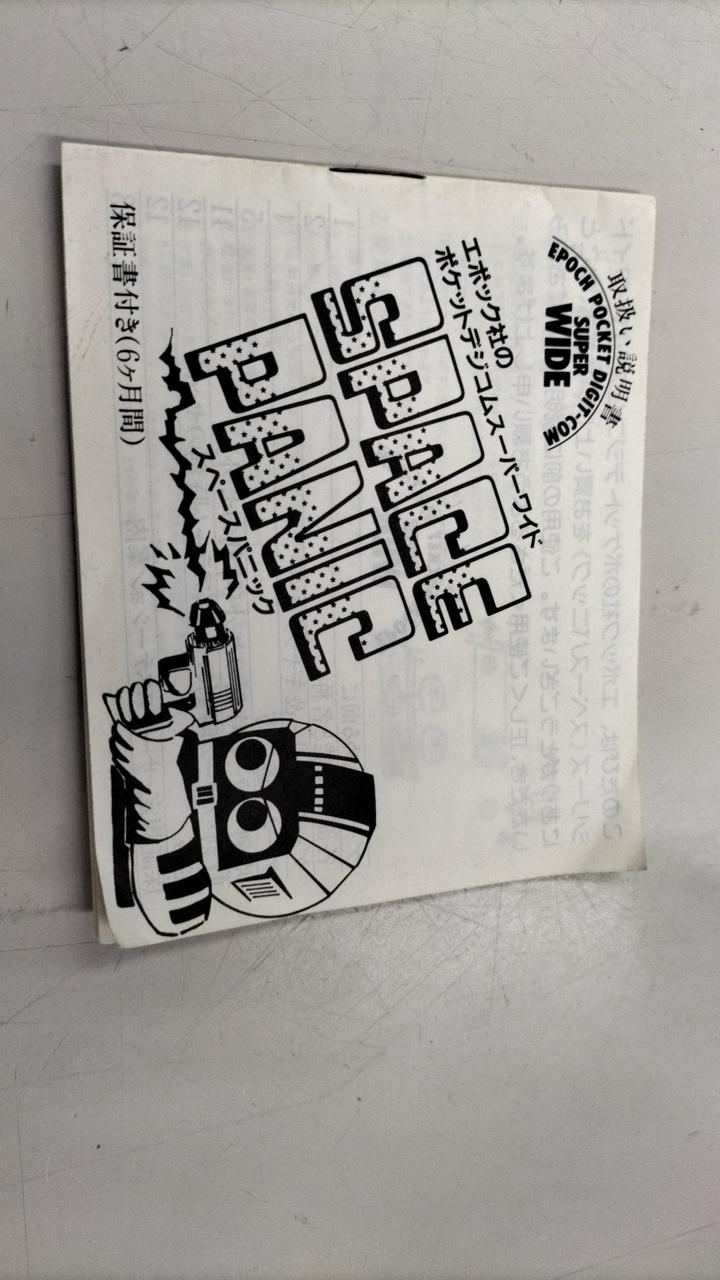 取扱い説明書
EPOCH POCKET DIGIT-COM
SUPER
WIDE
エポック社の
ポケットデジコムスーパーワイド
SPACE
PANIC
スペースパニック
保証書付き(6ヶ月間)